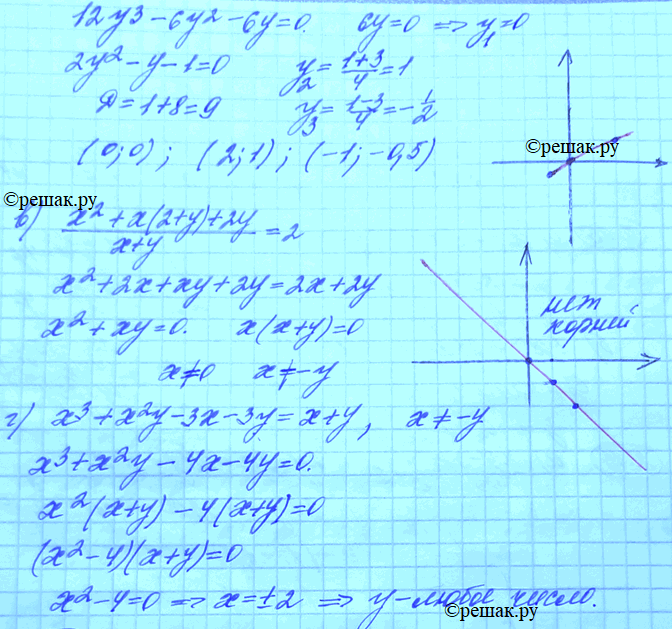 12y³ - 6y² - 6y = 0. 6y = 0 => y₁ = 0
2y² - y - 1 = 0 y₂ = (1+3)/4 = 1
D = 1 + 8 = 9 y₃ = (1-3)/4 = -1/2
(0; 0); (2; 1); (-1; -0,5)
©решак.ру
©решак.ру
в) (x² + x(2+y) + 2y)/(x+y) = 2
x² + 2x + xy + 2y = 2x + 2y
x² + xy = 0. x(x+y) = 0
x ≠ 0 x ≠ -y
нет
корней
г) x³ + x²y - 3x - 3y = x + y, x ≠ -y
x³ + x²y - 4x - 4y = 0.
x²(x+y) - 4(x+y) = 0
(x² - 4)(x+y) = 0
x² - 4 = 0 => x = ±2 => y - любое число.
©решак.ру